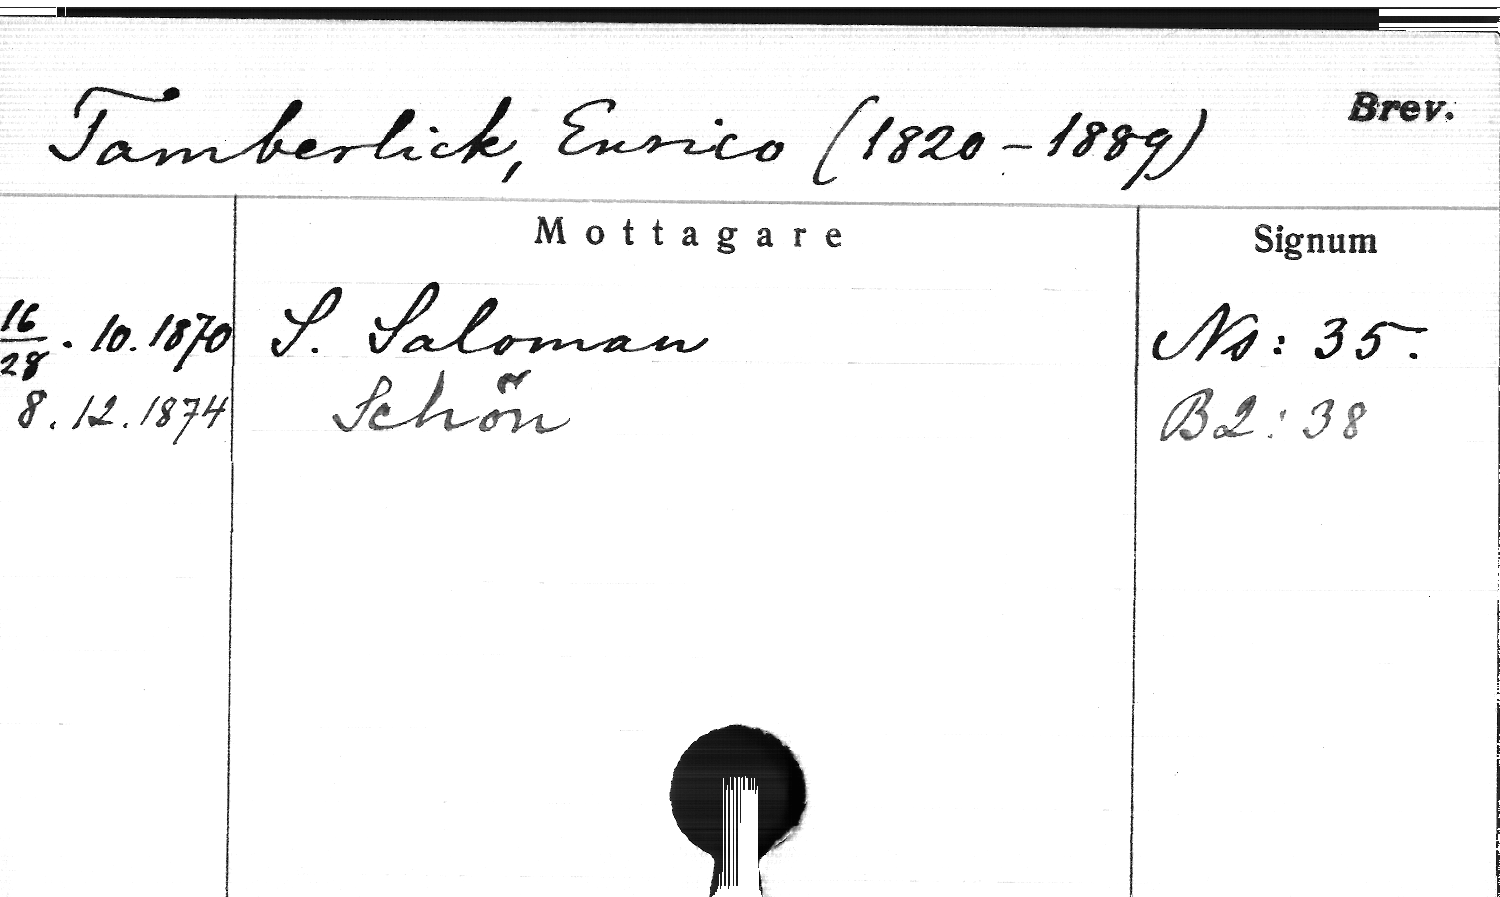 Tamberlick, Enrico (1820-1889) Brev.
Mottagare Signum
16/28. 10. 1870 S. Saloman Ns: 35.
8. 12. 1874 Schön B2: 38